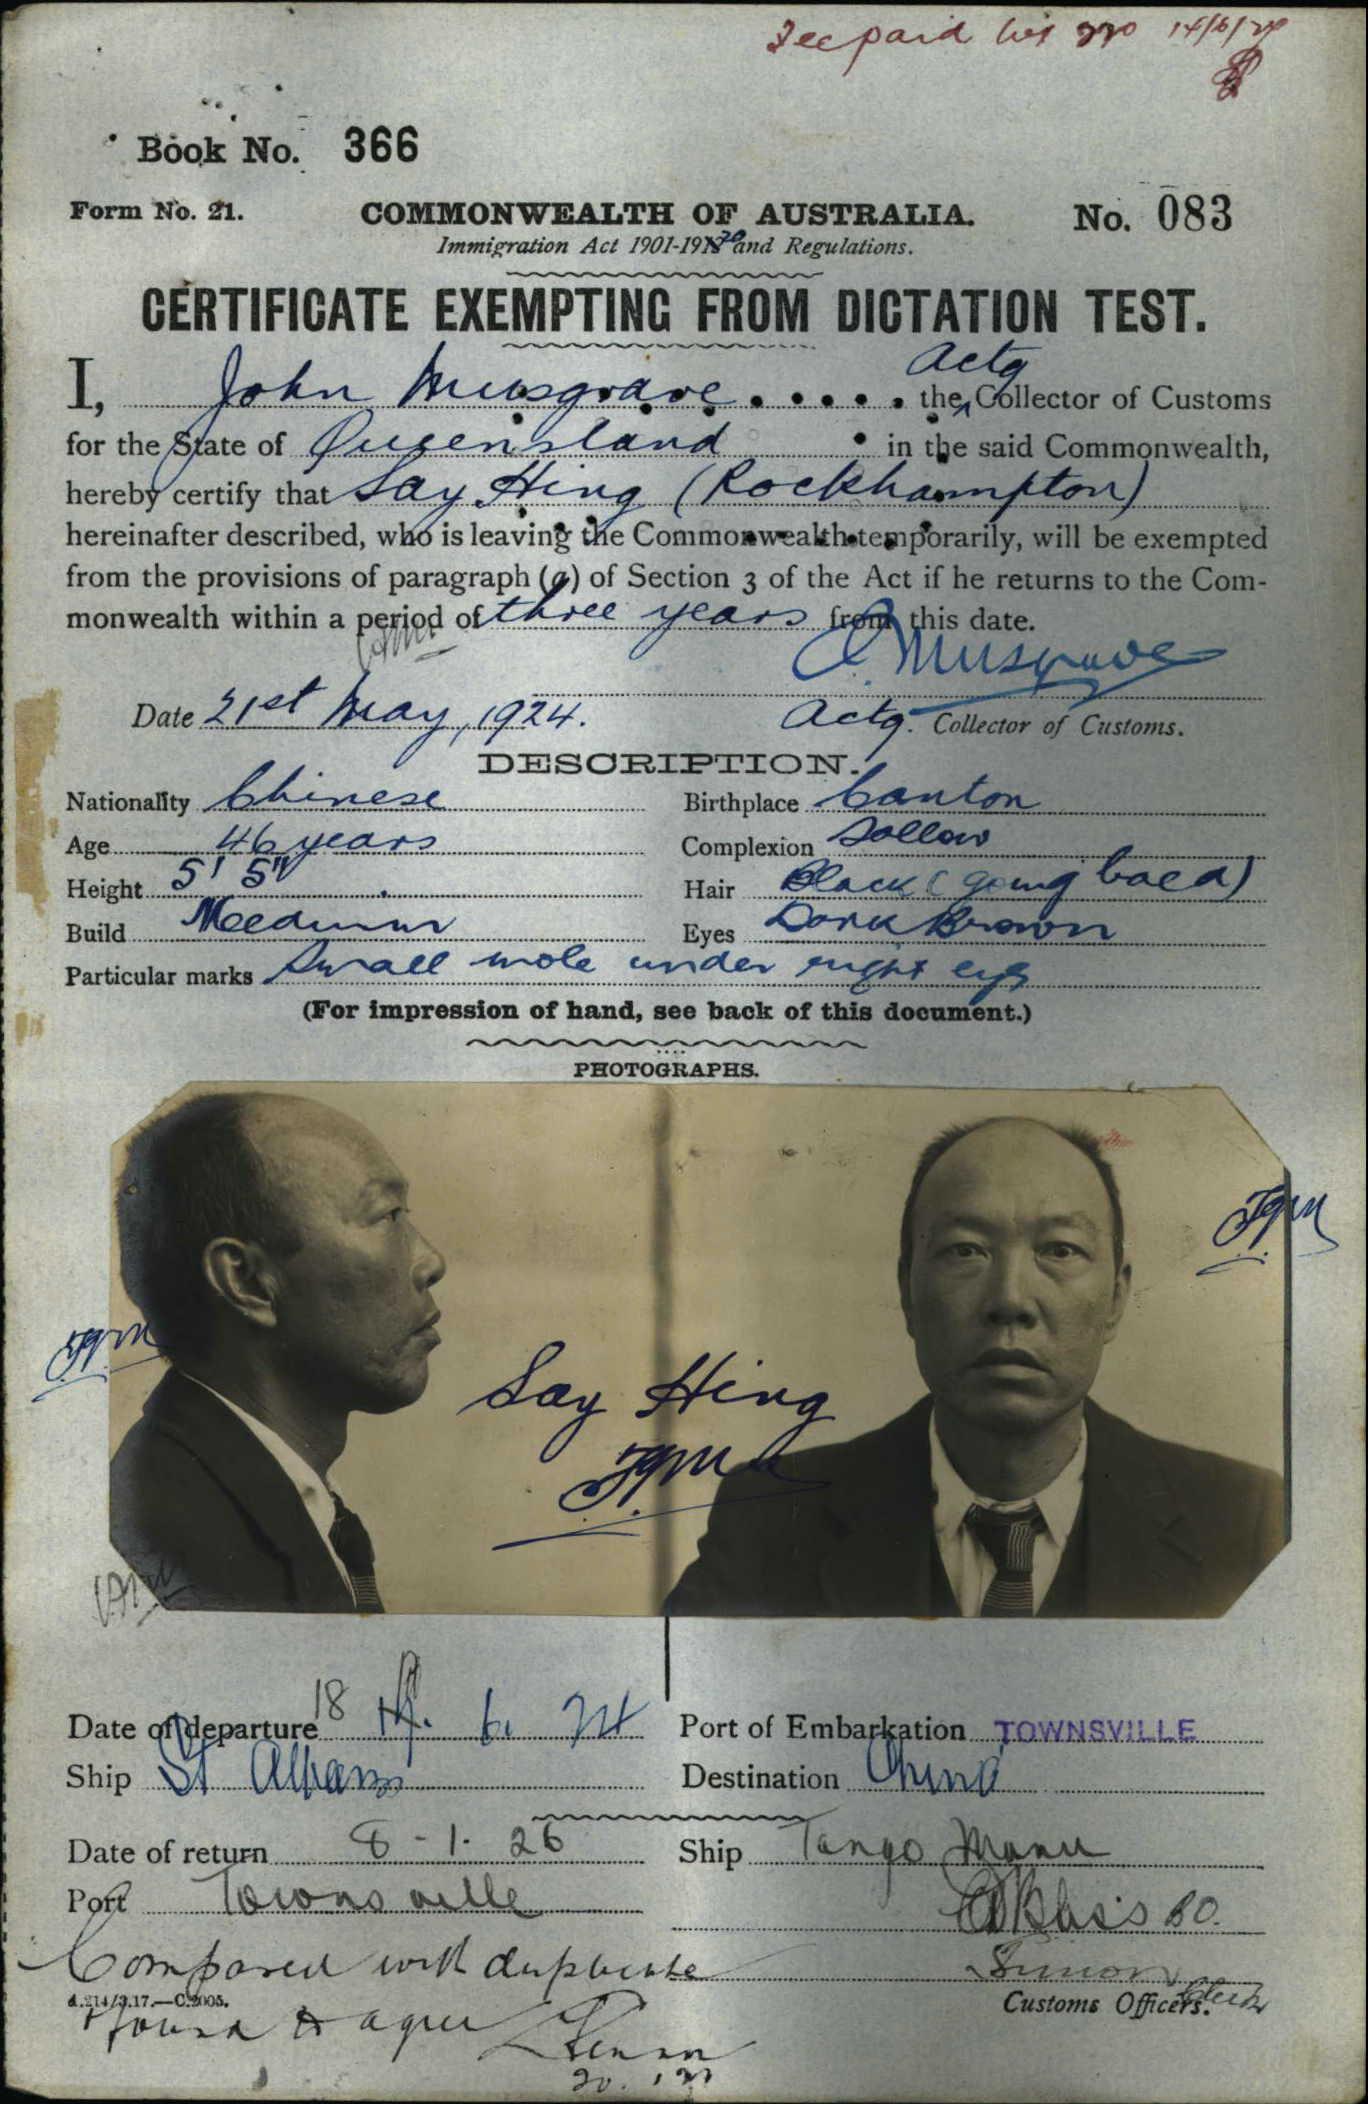 Fee paid
Book No. 366
Form No. 21. COMMONWEALTH OF AUSTRALIA. No. 083
Immigration Act 1901-1920 and Regulations.
CERTIFICATE EXEMPTING FROM DICTATION TEST.
Actg
I, John Musgrave the Collector of Customs
for the State of Queensland in the said Commonwealth,
hereby certify that Say Hing (Rockhampton)
hereinafter described, who is leaving the Commonwealth temporarily, will be exempted
from the provisions of paragraph (a) of Section 3 of the Act if he returns to the Com-
monwealth within a period of three years from this date.
Musgrave
Date 21st May, 1924. Actg. Collector of Customs.
DESCRIPTION.
Nationality Chinese Birthplace Canton
Age 46 years Complexion Sallow
Height 5' 5" Hair Black (going bald)
Build Medium Eyes Dark Brown
Particular marks Small mole under right eye
(For impression of hand, see back of this document.)
PHOTOGRAPHS.
Say Hing
Date of departure 18 6. 24 Port of Embarkation TOWNSVILLE
Ship St Albans Destination China
Date of return 8-1-26 Ship Tango Maru
Port Townsville
Compared with duplicate
Customs Officers.